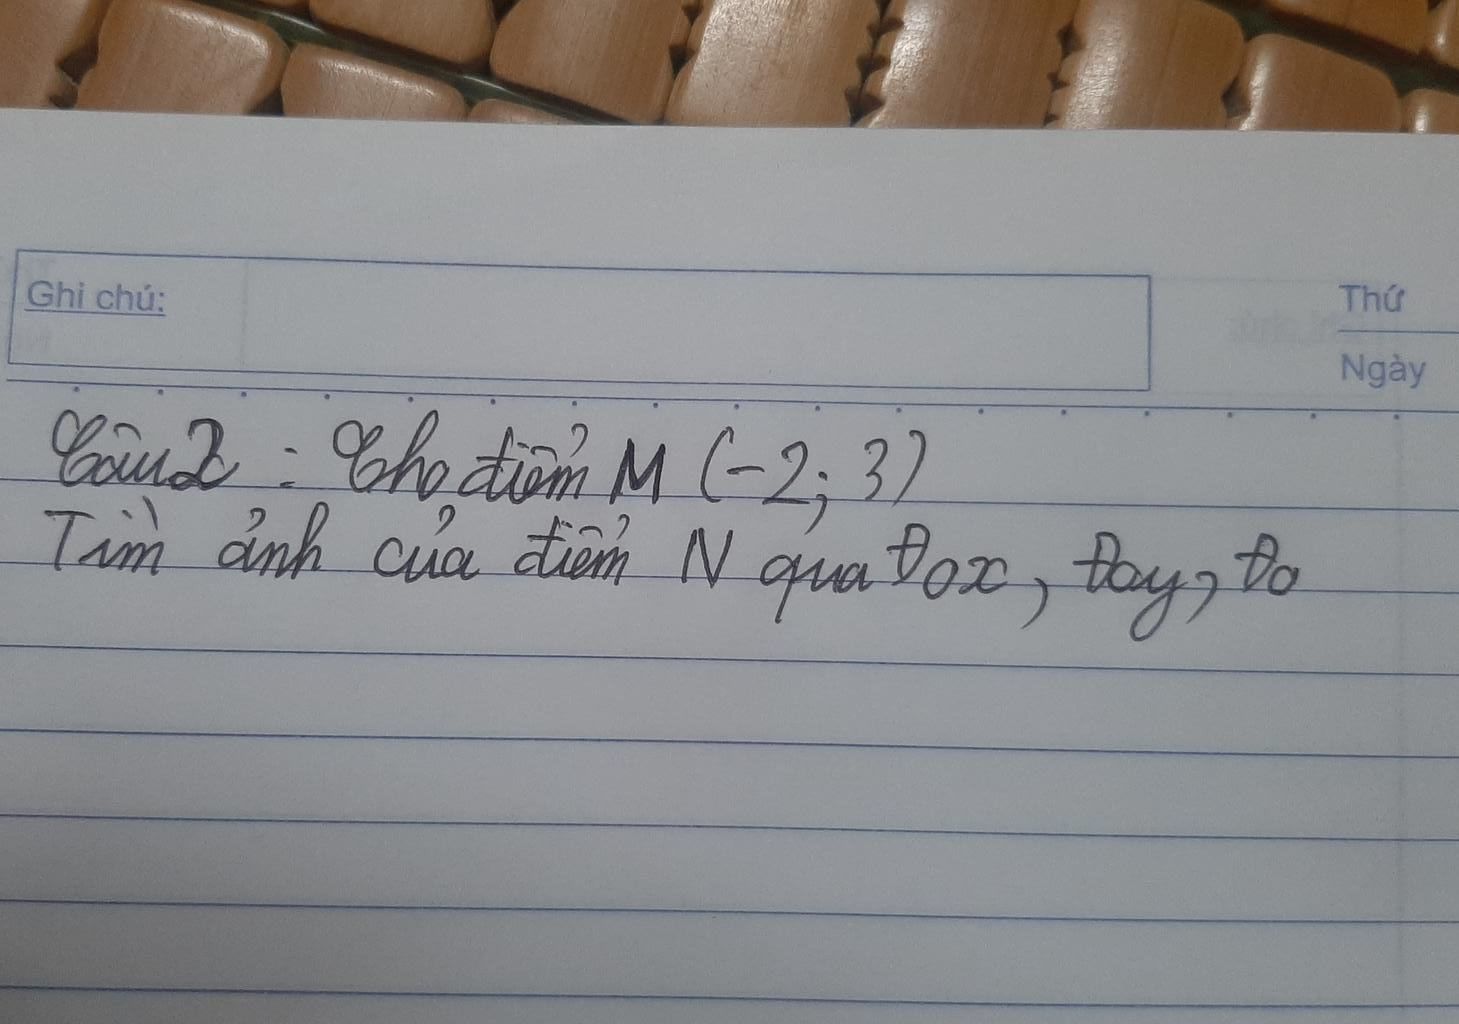 Ghi chú:
Thứ
Ngày
Câu 2 : Cho điểm M (-2; 3)
Tìm ảnh của điểm N qua Đox, Đoy, Đo